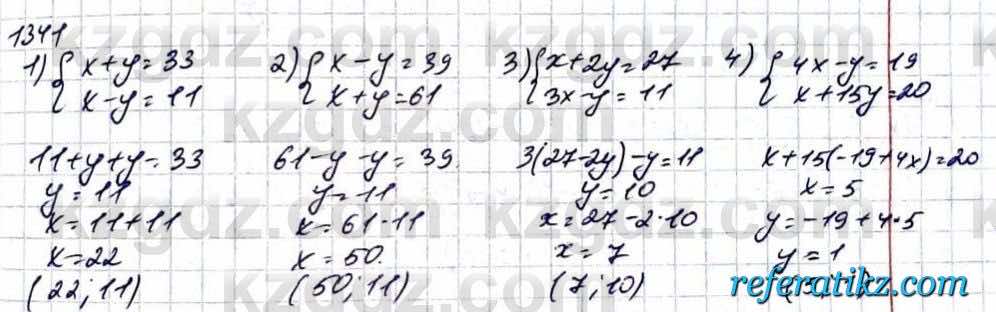 1341
1) { x+y=33
x-y=11
11+y+y=33
y=11
x=11+11
x=22
(22;11)
2) { x-y=39
x+y=61
61-y-y=39.
y=11
x=61·11
x=50.
(50;11)
3) { x+2y=27
3x-y=11
3(27-2y)-y=11
y=10
x=27-2·10
x=7
(7;10)
4) { 4x-y=19
x+15y=20
x+15(-19+4x)=20
x=5
y=-19+4·5
y=1
kzgdz.com
referatikz.com